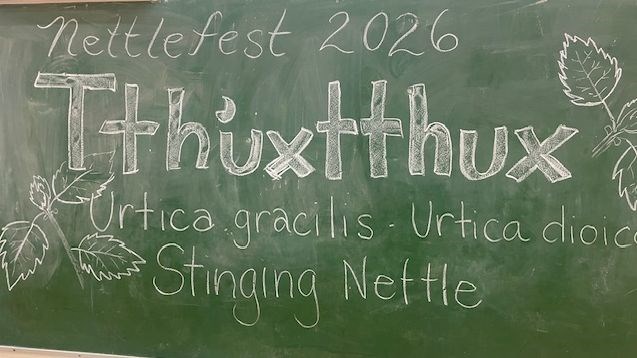 Nettlefest 2026
Tth'uxtthux
Urtica gracilis - Urtica dioica
Stinging Nettle